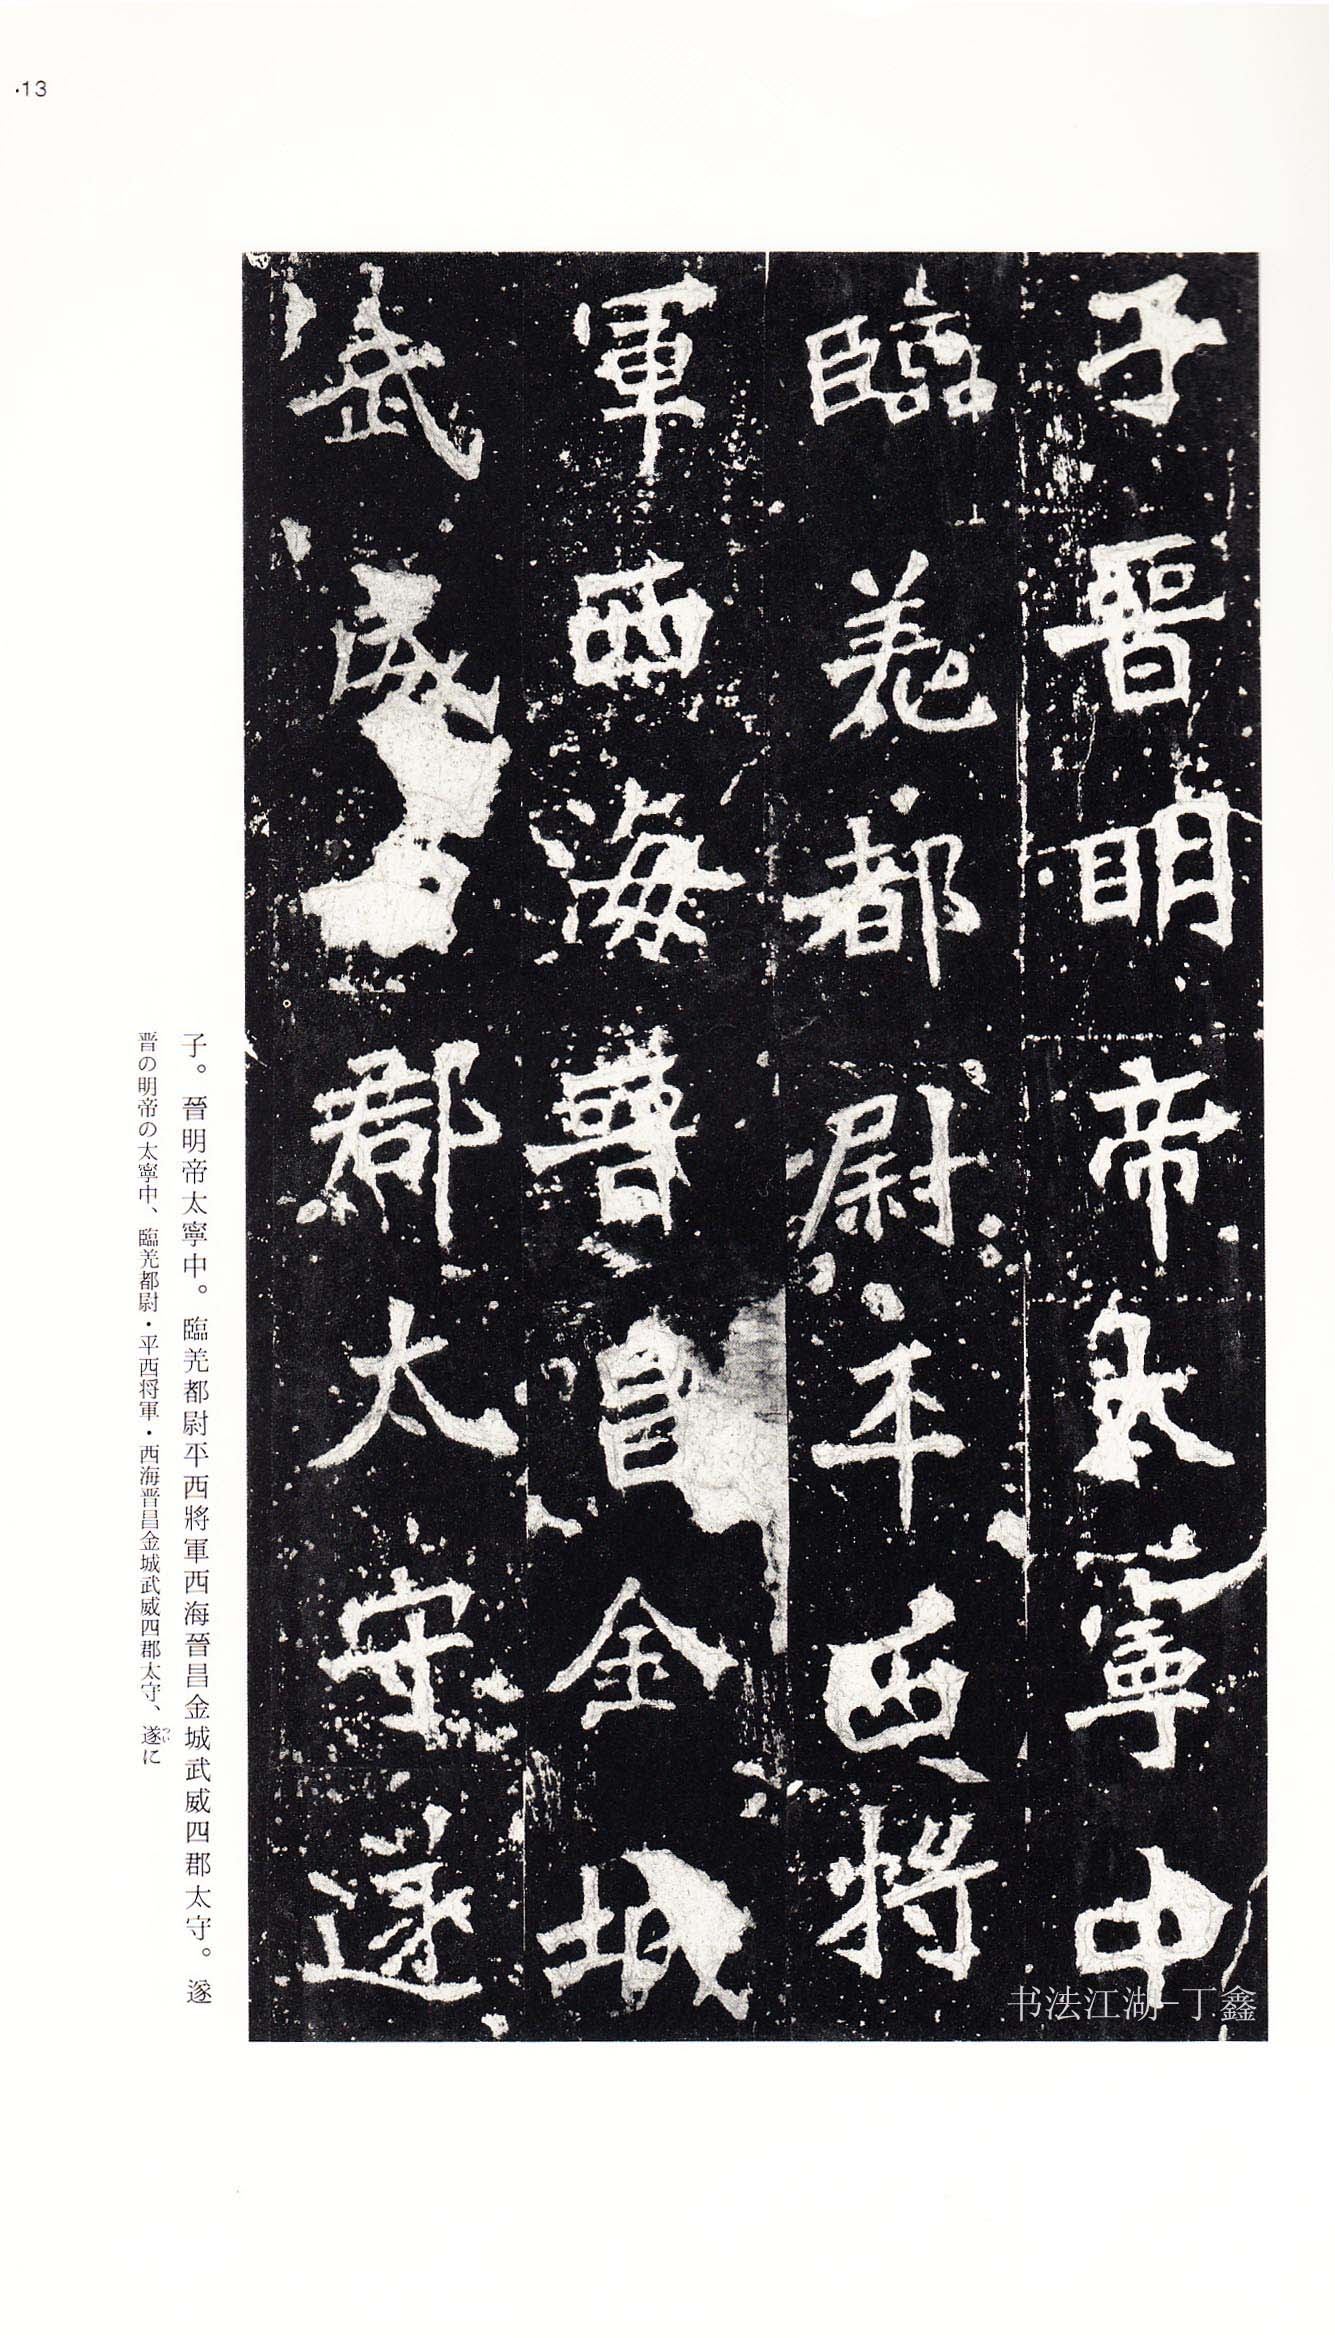 ·13
子晉明帝太寧中
臨羌都尉平西將
軍西海晉昌金城
武威四郡太守遂
子。晉明帝太寧中。臨羌都尉平西將軍西海晉昌金城武威四郡太守。遂
晋の明帝の太寧中、臨羌都尉・平西将軍・西海晋昌金城武威四郡太守、遂に
つい
书法江湖-丁鑫